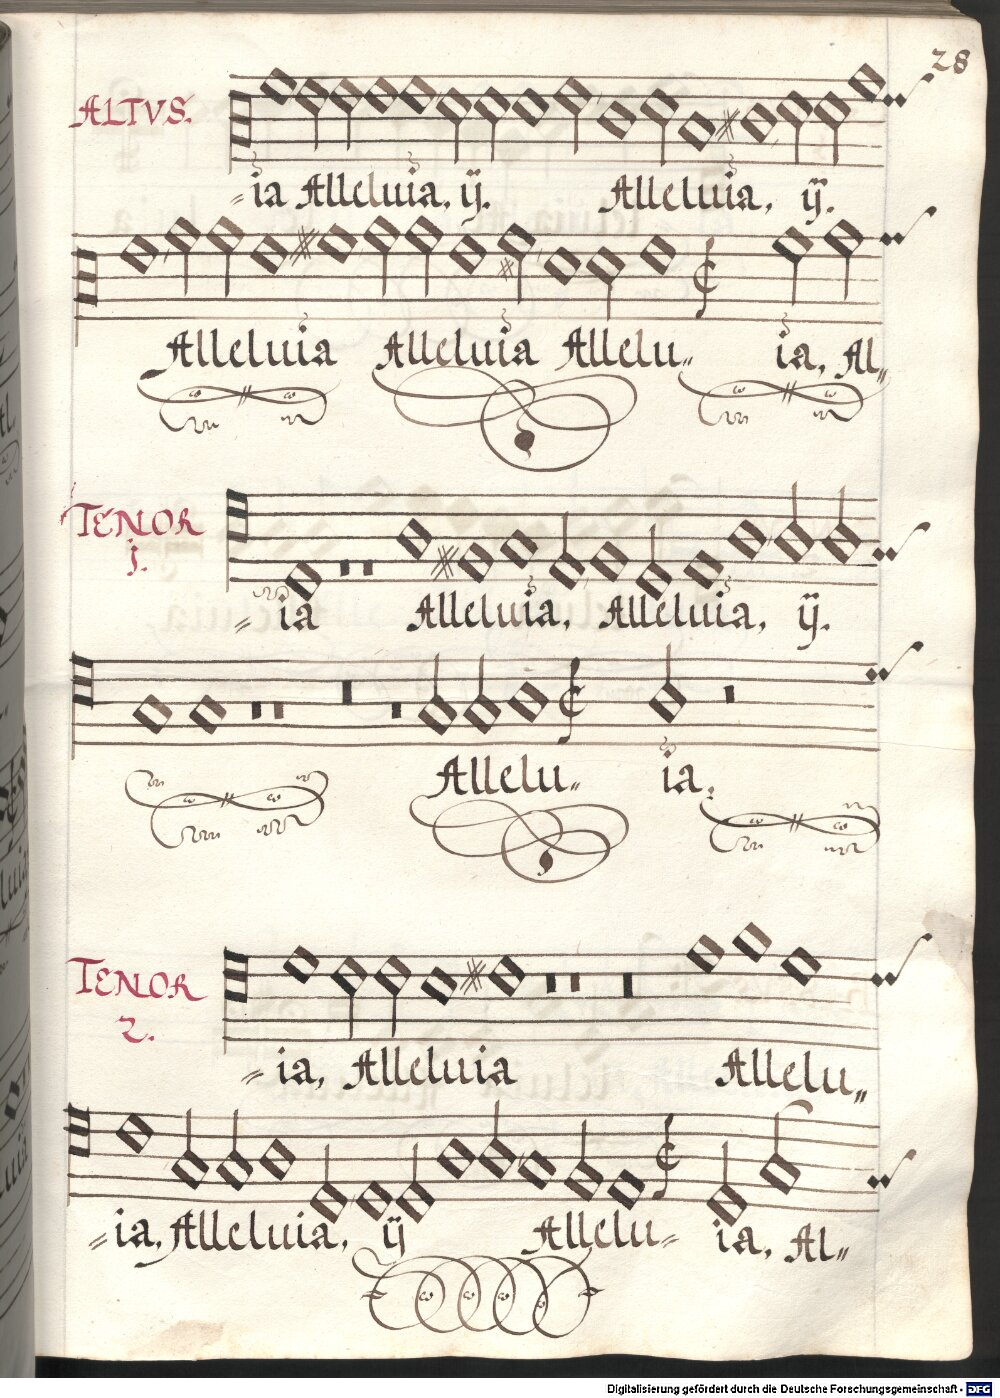 28
ALTVS.
=ia Alleluia, ij. Alleluia, ij.
Alleluia Alleluia Allelu„ ia, Al„
TENOR
1.
=ia Alleluia, Alleluia, ij.
Allelu„ ia.
TENOR
2.
=ia, Alleluia Allelu„
=ia, Alleluia, ij Allelu= ia, Al„
Digitalisierung gefördert durch die Deutsche Forschungsgemeinschaft - DFG